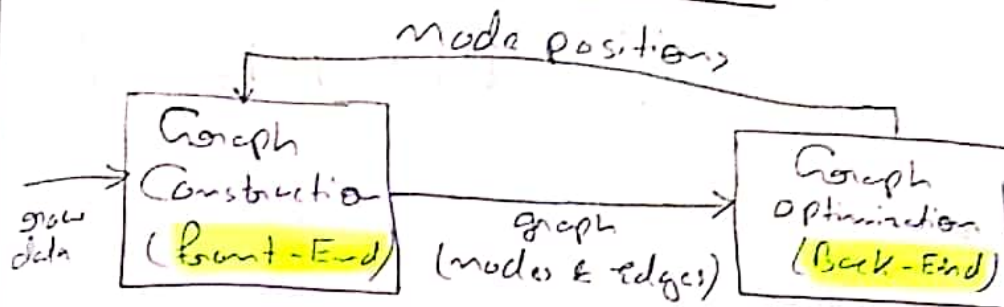 node positions
Graph
Construction
(Front-End)
raw
data
graph
(nodes & edges)
Graph
optimization
(Back-End)